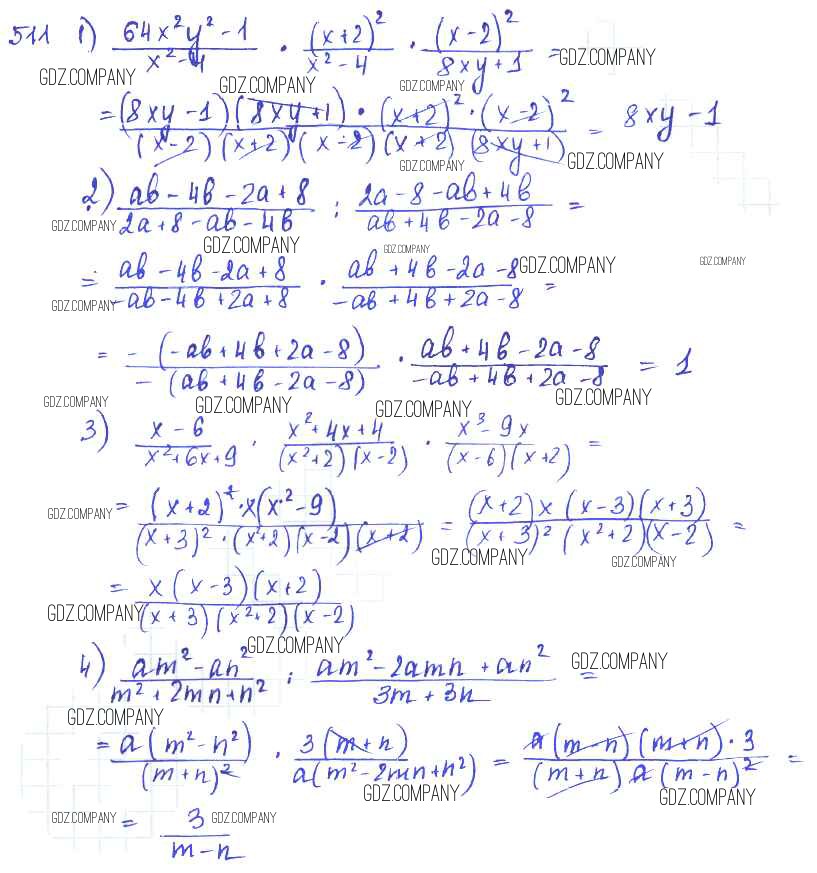 511 1) (64x²y² - 1)/(x² - 4) · (x+2)²/(x² - 4) · (x-2)²/(8xy+1) = GDZ.COMPANY
GDZ.COMPANY GDZ.COMPANY GDZ.COMPANY
= ((8xy - 1)(8xy+1) · (x+2)² · (x-2)²)/((x-2)(x+2)(x-2)(x+2)(8xy+1)) = 8xy - 1
GDZ.COMPANY GDZ.COMPANY
2) (ab - 4b - 2a + 8)/(2a + 8 - ab - 4b) : (2a - 8 - ab + 4b)/(ab + 4b - 2a - 8) =
GDZ.COMPANY GDZ.COMPANY GDZ.COMPANY GDZ.COMPANY
= (ab - 4b - 2a + 8)/(-ab - 4b + 2a + 8) · (ab + 4b - 2a - 8)/(-ab + 4b + 2a - 8) = GDZ.COMPANY
GDZ.COMPANY
= (-(-ab + 4b + 2a - 8))/(-(ab + 4b - 2a - 8)) · (ab + 4b - 2a - 8)/(-ab + 4b + 2a - 8) = 1
GDZ.COMPANY GDZ.COMPANY GDZ.COMPANY GDZ.COMPANY
3) (x - 6)/(x² + 6x + 9) · (x² + 4x + 4)/((x² + 2)(x - 2)) · (x³ - 9x)/((x - 6)(x + 2)) =
GDZ.COMPANY = ((x+2)² · x(x² - 9))/((x+3)² · (x²+2)(x-2)(x+2)) = ((x+2)x(x-3)(x+3))/((x+3)²(x²+2)(x-2)) =
GDZ.COMPANY GDZ.COMPANY
= (x(x-3)(x+2))/((x+3)(x²+2)(x-2))
GDZ.COMPANY
GDZ.COMPANY
4) (am² - an²)/(m² + 2mn + n²) : (am² - 2amn + an²)/(3m + 3n) = GDZ.COMPANY
GDZ.COMPANY
= (a(m² - n²))/((m+n)²) · (3(m+n))/(a(m² - 2mn + n²)) = (a(m-n)(m+n) · 3)/((m+n)a(m-n)²) =
GDZ.COMPANY GDZ.COMPANY
GDZ.COMPANY = 3/(m - n) GDZ.COMPANY